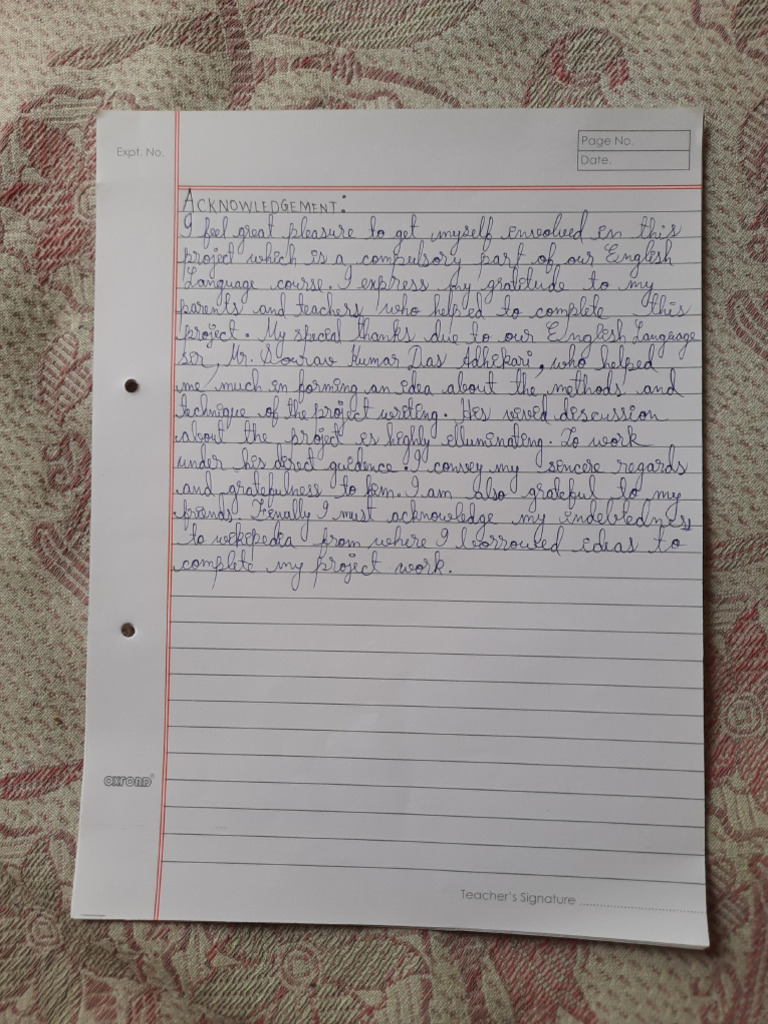 Expt. No.
Page No.
Date.
ACKNOWLEDGEMENT:
I feel great pleasure to get myself involved in this
project which is a compulsory part of our English
Language course. I express my gratitude to my
parents and teachers who helped to complete this
project. My special thanks due to our English Language
sir, Mr. Sourav Kumar Das Adhikari, who helped
me much in forming an idea about the methods and
technique of the project writing. His discussion
about the project is highly illuminating. To work
under his direct guidence. I convey my sincere regards
and gratefulness to him. I am also grateful to my
friends. Finally I must acknowledge my indebtedness
to wikipedia from where I borrowed ideas to
complete my project work.
OXFORD
Teacher's Signature